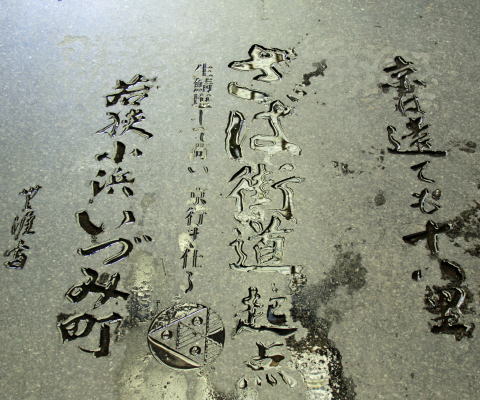 京は遠ても十八里
さば街道 起点
生鯖塩して担い 京行き仕る
若狭小浜いづみ町